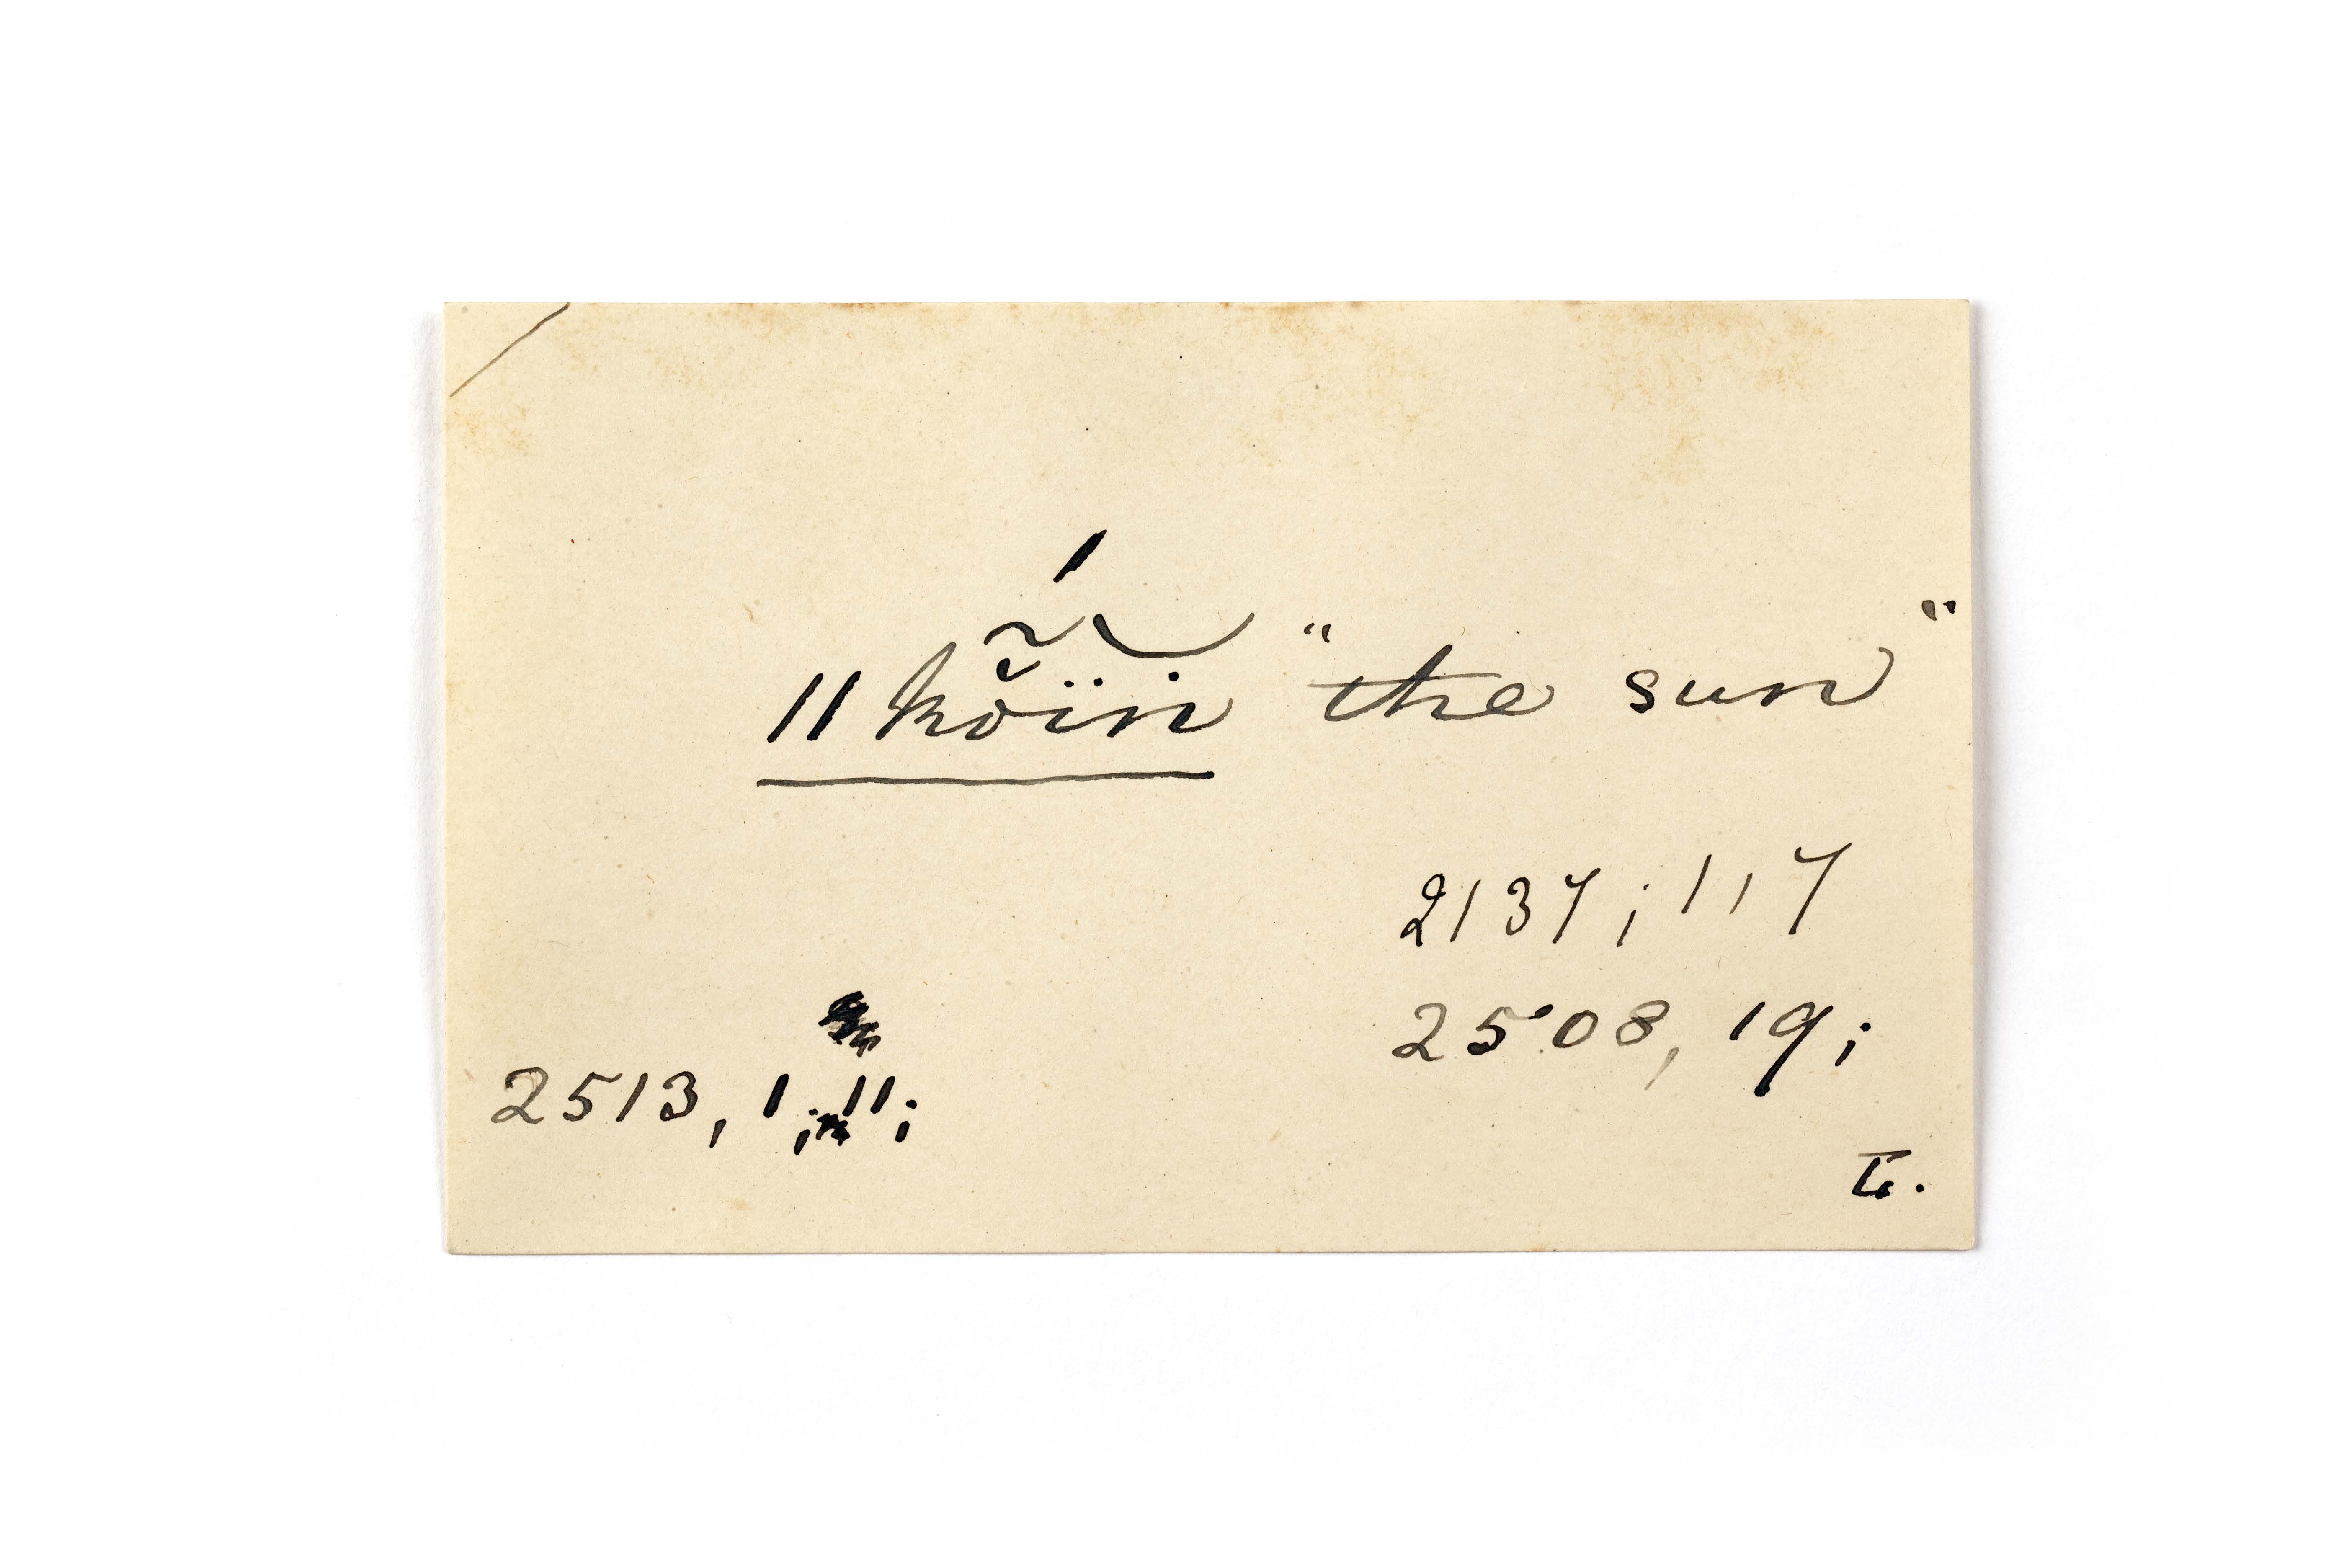 ‖kõ̆ïn "the sun"
2137; 1, 7
2508, 19;
2513, 1; 11;